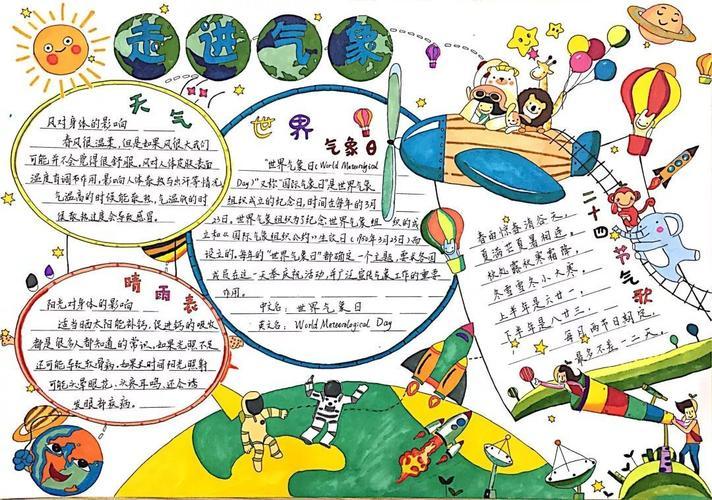 走进气象
天气
风对身体的影响
春风很温柔，但是如果风很大我们
可能并不会觉得很舒服，风对人体皮肤表面
温度有调节作用，影响人体散热与出汗等情况
气温高的时候能散热，气温低的时
候散热过度会导致感冒。
晴雨表
阳光对身体的影响
适当晒太阳能补钙，促进钙的吸收
都是很多人都知道的常识，如果光照不足
还可能导致软骨病，如果长时间阳光照射
可能头晕眼花、头疼耳鸣，还会诱
发眼部疾病。
世界
气象日
"世界气象日(World Meteorlogical
Day)"又称"国际气象日"是世界气象
组织成立的纪念日，时间在每年的3月
23日。世界气象组织为了纪念世界气象组织的成
立和《国际气象组织公约》生效日(1950年3月23日)而
设立的，每年的"世界气象日"都确定一个主题，要求各国
成员在这一天举庆祝活动，并广泛宣传气象工作的重要
作用。
中文名：世界气象日
英文名：World Meteorological Day
二十四节气歌
春雨惊春清谷天，
夏满芒夏暑相连。
秋处露秋寒霜降，
冬雪雪冬小大寒，
上半年是六廿一，
下半年是八廿三，
每月两节日期定，
最多不差一二天。